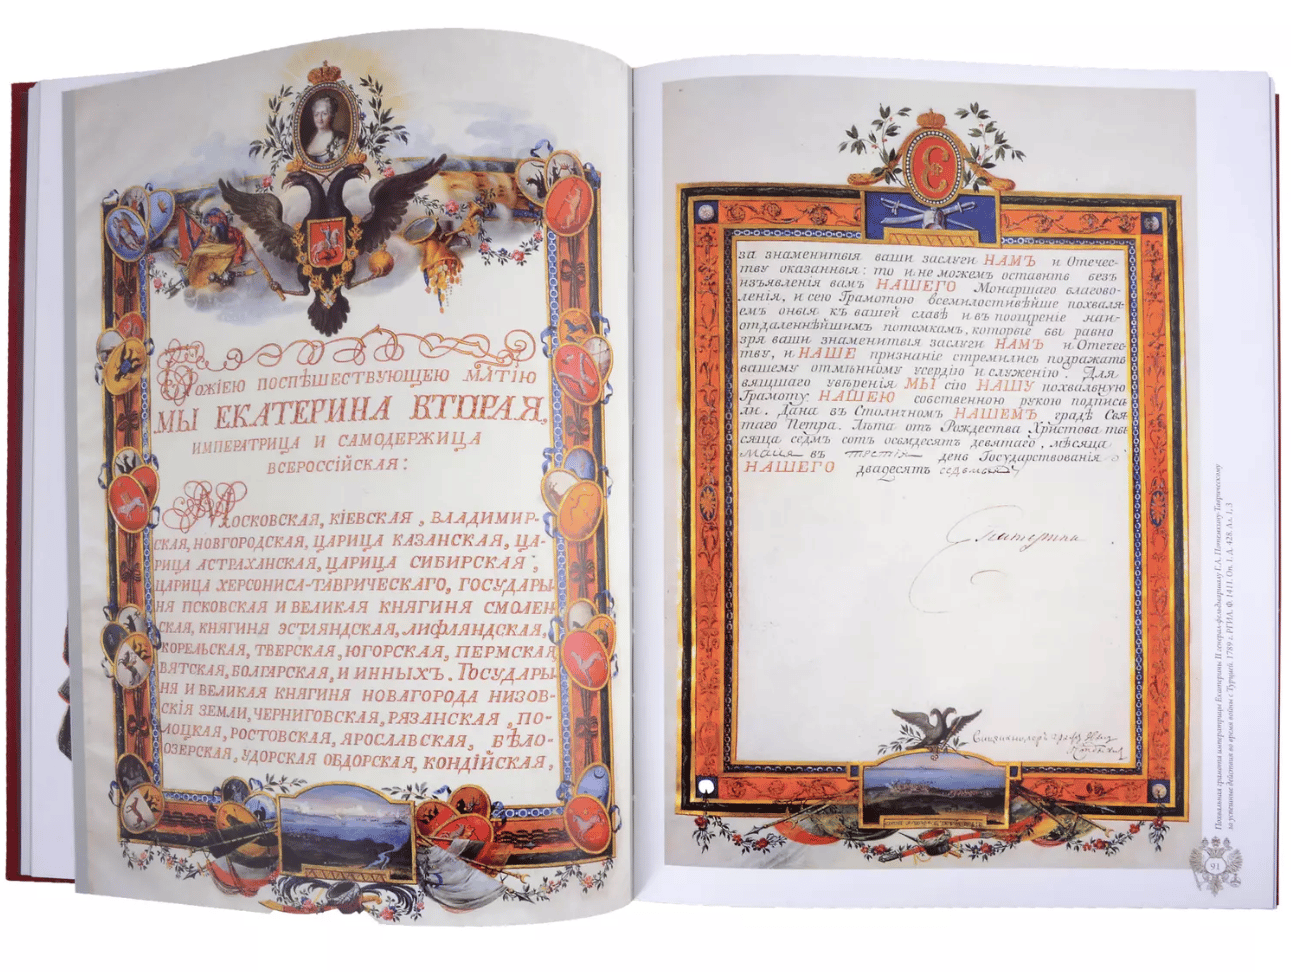 Божіею поспѣшествующею мл҃тію
МЫ ЕКАТЕРИНА ВТОРАЯ,
ИМПЕРАТРИЦА И САМОДЕРЖИЦА
ВСЕРОССІЙСКАЯ:
МОСКОВСКАЯ, КІЕВСКАЯ, ВЛАДИМИР-
СКАЯ, НОВГОРОДСКАЯ, ЦАРИЦА КАЗАНСКАЯ, ЦА-
РИЦА АСТРАХАНСКАЯ, ЦАРИЦА СИБИРСКАЯ,
ЦАРИЦА ХЕРСОНИСА-ТАВРИЧЕСКАГО, ГОСУДАРЫ
НЯ ПСКОВСКАЯ И ВЕЛИКАЯ КНЯГИНЯ СМОЛЕН
СКАЯ, КНЯГИНЯ ЭСТЛЯНДСКАЯ, ЛИФЛЯНДСКАЯ,
КОРЕЛЬСКАЯ, ТВЕРСКАЯ, ЮГОРСКАЯ, ПЕРМСКАЯ
ВЯТСКАЯ, БОЛГАРСКАЯ, И ИННЫХЪ. ГОСУДАРЫ
НЯ И ВЕЛИКАЯ КНЯГИНЯ НОВАГОРОДА НИЗОВ-
СКІЯ ЗЕМЛИ, ЧЕРНИГОВСКАЯ, РЯЗАНСКАЯ, ПО-
ЛОЦКАЯ, РОСТОВСКАЯ, ЯРОСЛАВСКАЯ, БѢЛО-
ОЗЕРСКАЯ, УДОРСКАЯ ОБДОРСКАЯ, КОНДІЙСКАЯ,
Е
за знаменитыя ваши заслуги НАМЪ и Отечес-
тву оказанныя: то и не можемъ оставить безъ
изъявленія вамъ НАШЕГО Монаршаго благово-
ленія, и сею Грамотою всемилостивѣйше похваля-
емъ оныя къ вашей славѣ и въ поощреніе наи-
отдаленнѣйшимъ потомкамъ, которые бы равно
зря ваши знаменитыя заслуги НАМЪ и Отечес-
тву, и НАШЕ признаніе стремились подражать
вашему отмѣнному усердію и служенію. Для
вящшаго увѣренія МЫ сію НАШУ похвальную
Грамоту НАШЕЮ собственною рукою подписа
ли. Дана въ Столичномъ НАШЕМЪ градѣ Свя-
таго Петра. Лѣта отъ Рождества Христова ты
сяща седмь сотъ осемдесятъ девятаго, мѣсяца
Маія въ третій день Государствованія
НАШЕГО двадесять седьмый
Екатерина
Вицеканцлеръ графъ Иванъ
Похвальная грамота императрицы Екатерины II генерал-фельдмаршалу Г.А. Потемкину-Таврическому
за успешные действия во время войны с Турцией. 1789 г. РГИА. Ф. 1411. Оп. 1. Д. 428. Лл. 1, 3
91